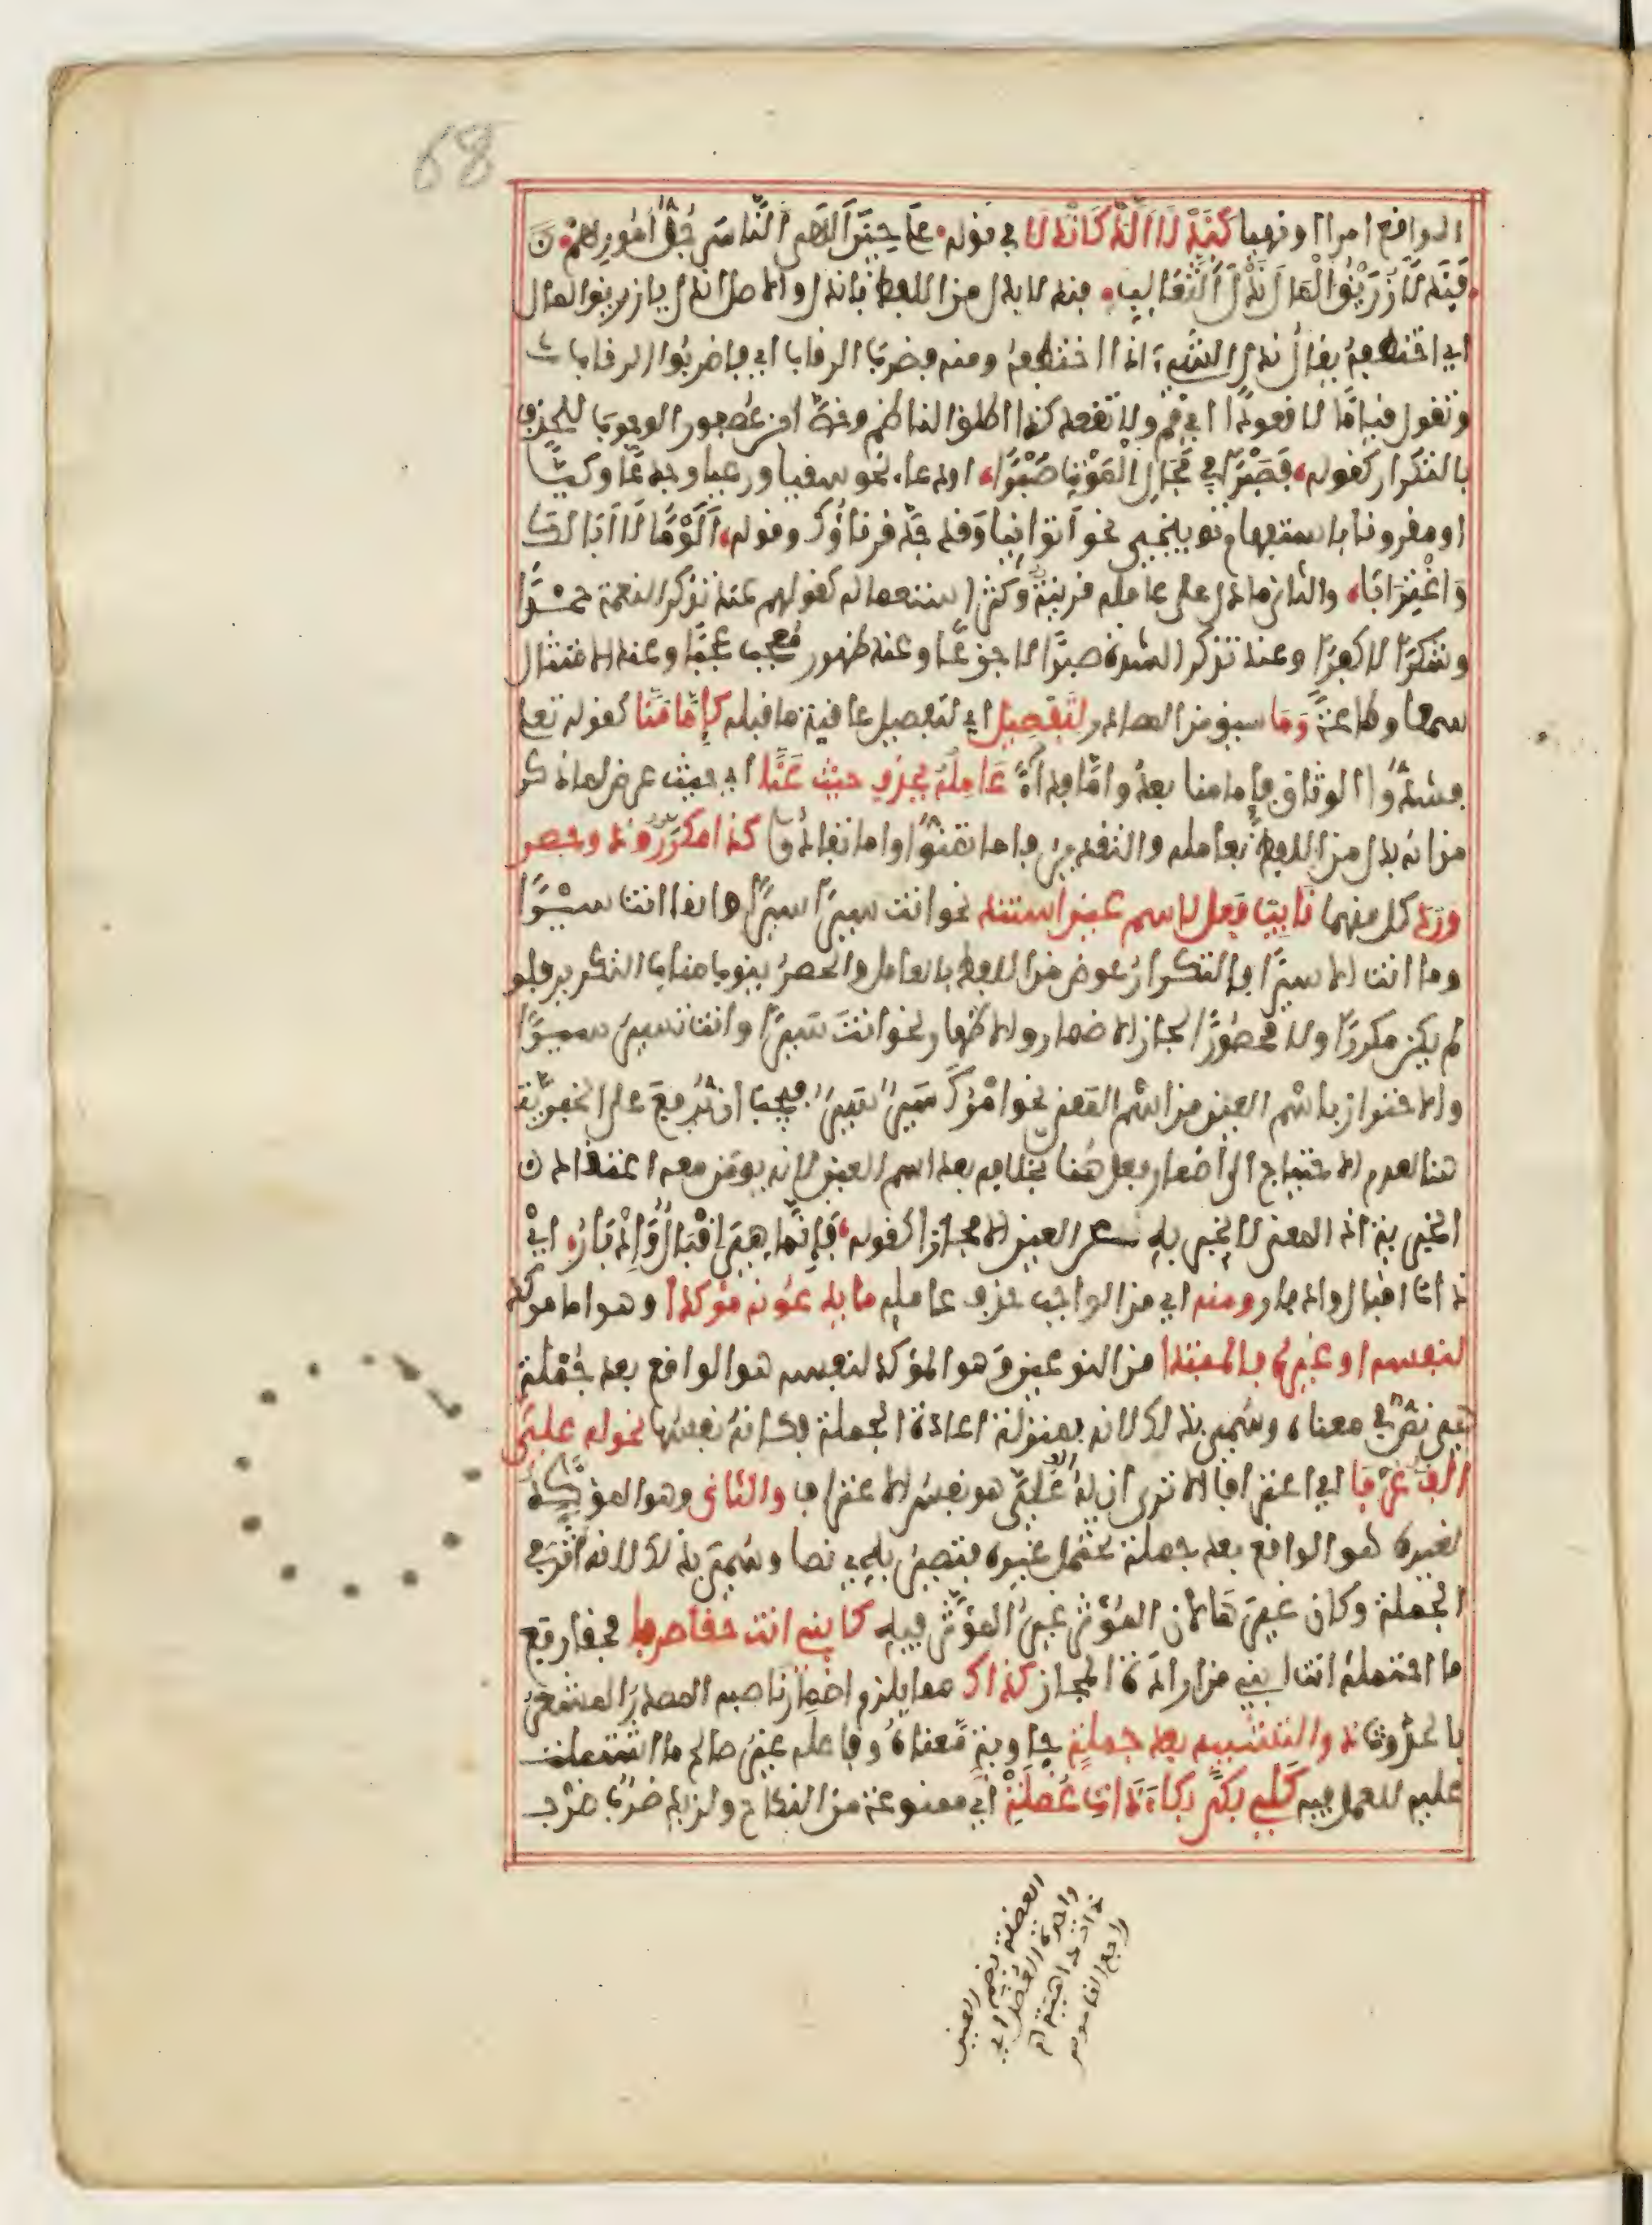 68
الواقع امرا او نهيا كندلا الذ كاندلا في قوله على حين الهى الناس جل امورهم
فندلا زريق المال ندل الثعالب فندلا بدل من اللفظ باندل والاصل اندل يا زريق المال
اي اختطفه يقال ندل الشيء اذا اختطفه ومنه فضرب الرقاب اي فاضربوا الرقاب
وتقول قياما لا قعودا اي قم ولا تقعد كذا اطلق الناظم وخص ابن عصفور الوجوب
بالتكرار كقوله فصبرا في مجال الموت صبرا او دعاء نحو سقيا ورعيا وجدعا وكيا
او مقرونا باستفهام توبيخي نحو اتوانيا وقد جد قرناؤك وقوله الؤما لا ابا لك
واغترابا والثاني ما دل على عامله قرينة وكثر استعماله كقولهم عند تذكر النعمة حمدا
وشكرا لا كفرا وعند تذكر الشدة صبرا لا جزعا وعند ظهور معجب عجبا وعند الامتثال
سمعا وطاعة وما سيق من المصادر لتفصيل اي لتفصيل عاقبة ما قبله كإما منا كقوله تعلى
فشدوا الوثاق فإما منا بعد وإما فداء عامله يحذف حيث عنا اي حيث عرض لما ذكر
من انه بدل من اللفظ بعامله والتقدير فإما تمنوا وإما تفادوا كذا مكرر وذو حصر
ورد كل منهما نايب فعل لاسم عين استند نحو انت سيرا سيرا وانما انت سيرا
وما انت الا سيرا فالتكرار عوض من اللفظ بالعامل والحصر ينوب مناب التكرير فلو
لم يكن مكررا ولا محصورا لجاز الاضمار والاظهار نحو انت سيرا وانت تسير سيرا
والاحتراز باسم العين من اسم المعنى نحو امرك سير سير فيجب ان يرفع على الخبرية
هنا لعدم الاحتياج الى اضمار فعل هنا بخلافه بعد اسم العين لانه يومن معه اعتقاد
الخبرية اذ المعنى لا يخبر به عن العين الا مجازا كقوله فإنما هي اقبال وادبار اي
ذات اقبال وادبار ومنه اي من الواجب حذف عامله ما يدعونه مؤكدا وهو اما موكد
لنفسه او غيره فالمبتدا من النوعين وهو المؤكد لنفسه هو الواقع بعد جملة
هي نص في معناه وسمي بذلك لانه بمنزلة اعادة الجملة فكانه نفسها نحو له علي
الف عرفا اي اعترافا الا ترى ان له علي الف هو نفس الاعتراف والثاني وهو المؤكد
لغيره هو الواقع بعد جملة تحتمل غيره فتصير به نصا وسمي بذلك لانه اثر في
الجملة وكان غيرها لان المؤثر غير المؤثر فيه كابني انت حقا صرفا فحقا رفع
ما احتمله انت ابني من ارادة المجاز كذاك مما يلزم اضمار ناصبه المصدر المشعر
بالحدوث ذو التشبيه بعد جملة حاوية معناه وفاعله غير صالح ما اشتملت
عليه للعمل فيه كلي بكى بكاء ذات عضلة اي ممنوعة من النكاح ولزيد ضرب ضرب
العضلة بضم العين
واحدة العضل اي
ذات داهية اه
راجع القاموس